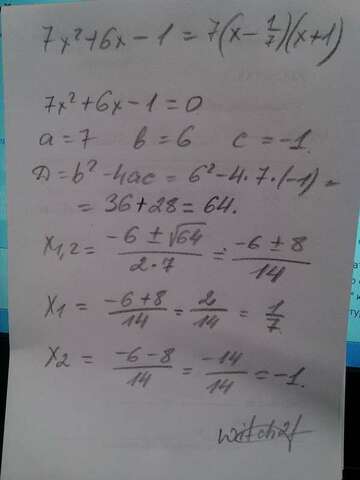 7x²+6x-1=7(x-1/7)(x+1)
7x²+6x-1=0
a=7 b=6 c=-1.
D=b²-4ac=6²-4·7·(-1)=
=36+28=64.
x1,2=(-6±√64)/(2·7)=(-6±8)/14
x1=(-6+8)/14=2/14=1/7
x2=(-6-8)/14=-14/14=-1.